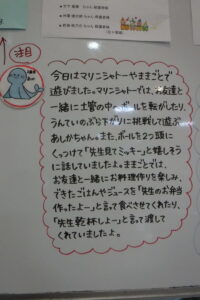 注目
今日はマリンシャトーやままごとで
遊びました。マリンシャトーでは、お友達と
一緒に土管の中へボールを転がしたり、
うんていのぶら下がりに挑戦して遊ぶ
あしかちゃん。また、ボールを2つ頭に
くっつけて「先生見てミッキー」と嬉しそう
に話していましたよ。ままごとでは、
お友達と一緒にお料理作りを楽しみ、
できたごはんやジュースを「先生のお弁当
作ったよー」と言って食べさせてくれたり、
「先生乾杯しよー」と言って渡して
くれていましたよ。